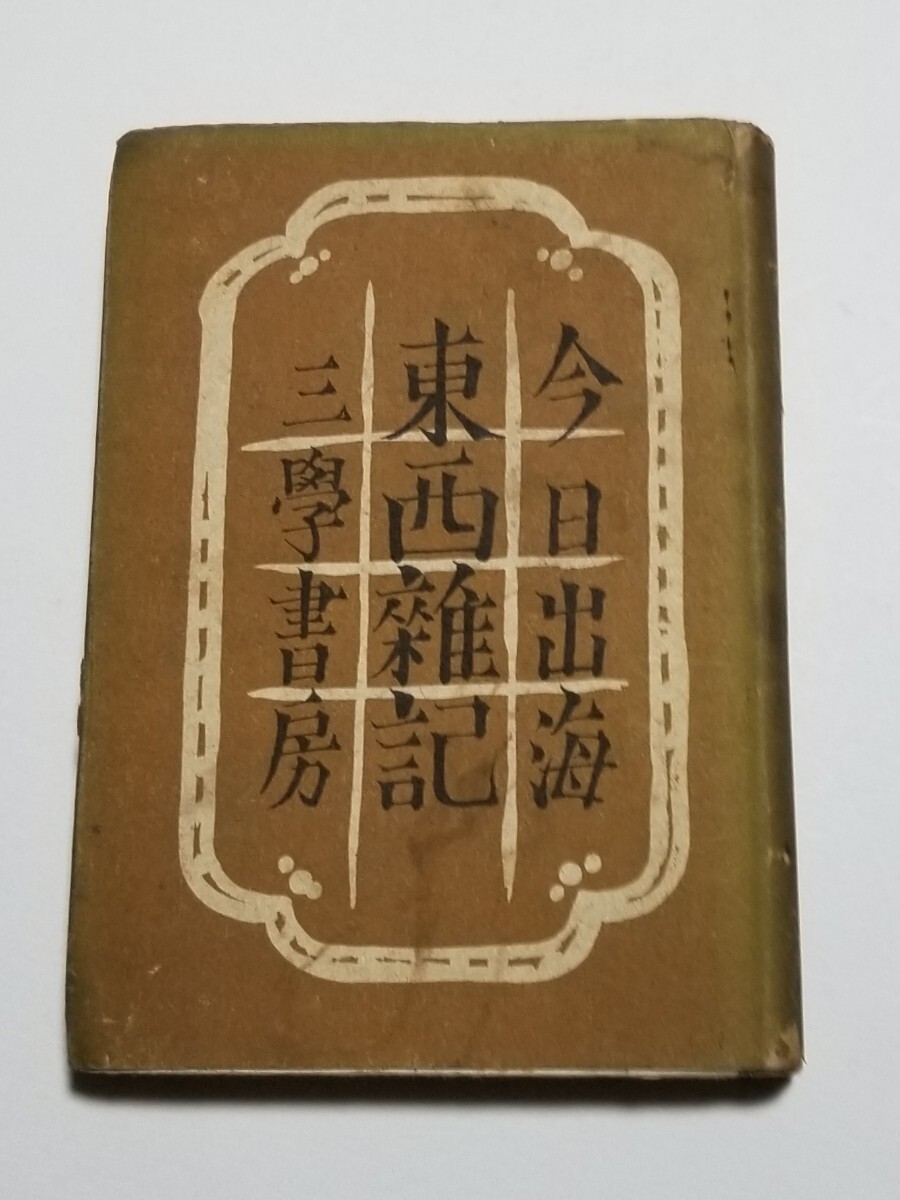 今日出海
東西雜記
三學書房